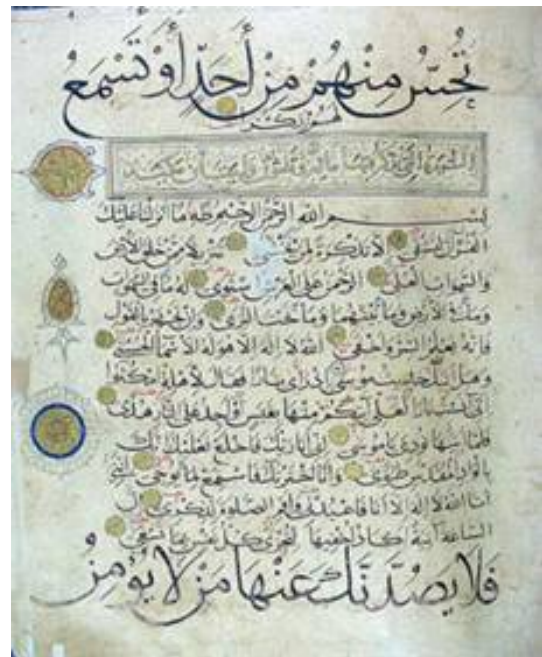 تُحِسُّ مِنْهُمْ مِنْ أَحَدٍ أَوْ تَسْمَعُ
بسم الله الرحمن الرحيم طه ما انزلنا عليك
القرآن لتشقى الا تذكرة لمن يخشى تنزيلا ممن خلق الارض
والسموات العلى الرحمن على العرش استوى له ما في السموات
وما في الارض وما بينهما وما تحت الثرى وان تجهر بالقول
فانه يعلم السر واخفى الله لا اله الا هو له الاسماء الحسنى
وهل اتاك حديث موسى اذ رأى نارا فقال لاهله امكثوا
اني آنست نارا لعلي آتيكم منها بقبس او اجد على النار هدى
فلما اتاها نودي يا موسى اني انا ربك فاخلع نعليك انك
بالواد المقدس طوى وانا اخترتك فاستمع لما يوحى انني
انا الله لا اله الا انا فاعبدني واقم الصلوة لذكري ان
الساعة آتية اكاد اخفيها لتجزى كل نفس بما تسعى
فَلَا يَصُدَّنَّكَ عَنْهَا مَنْ لَا يُؤْمِنُ